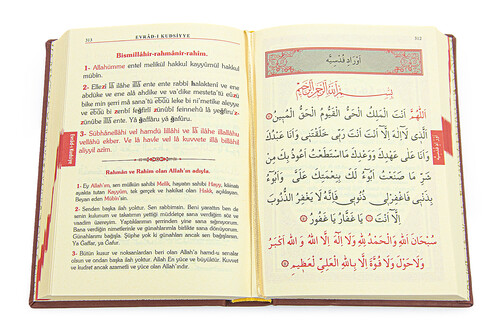 313
EVRÂD-I KUDSİYYE
Bismillâhir-rahmânir-rahîm.
1- Allahümme entel melikül hakkul kayyûmül hakkul
mübîn.
2- Ellezî lâ ilâhe illâ ente ente rabbî halaktenî ve ene
abdüke ve ene alâ ahdike ve va'dike mesteta'tü eûzü
bike min şerri mâ sana'tü ebûü leke bi ni'metike aleyye
ve ebûü bi zenbî fağfirlî zünûbî feinnehû lâ yeğfiruz
zünûbe illâ ente. Yâ ğaffâru yâ ğafûru.
3- Sübhânellâhi vel hamdü lillâhi ve lâ ilâhe illallâhu
vellâhü ekber. Ve lâ havle ve lâ kuvvete illâ billâhil
aliyyil azîm.
Rahman ve Rahim olan Allah'ın adıyla.
1- Ey Allah'ım, sen mülkün sahibi Melik, hayatın sahibi Hayy, kâinatı
ayakta tutan Kayyûm, tek gerçek ve hakikat olan Hakk, açıklayan,
Beyan eden Mübîn'sin.
2- Senden başka ilah yoktur. Sen rabbimsin. Beni yarattın ben de
senin kulunum ve takatımın yettiği müddetçe sana verdiğim söz ve
vaadim üzereyim. Yaptıklarımın şerrinden yine sana sığınıyorum.
Bana verdiğin nimetlerinle ve günahlarımla birlikte sana dönüyorum.
Günahlarımı bağışla. Şüphe yok ki günahları ancak sen bağışlarsın.
Ya Gaffar, ya Gafur.
3- Bütün kusur ve noksanlardan beri olan Allah'a hamd-u senalar
olsun ve ondan başka ilah yoktur. Allah En Yüce ve büyüktür. Kuvvet
ve kudret ancak azametli ve yüce olan Allah'ındır.
312
أَوْرَادِ قُدْسِيَّه
بِسْمِ اللّٰهِ الرَّحْمٰنِ الرَّحِيمِ
اَللّٰهُمَّ اَنْتَ الْمَلِكُ الْحَقُّ الْقَيُّومُ الْحَقُّ الْمُبِينُ
اَلَّذِي لَا اِلٰهَ اِلَّا اَنْتَ اَنْتَ رَبِّي خَلَقْتَنِي وَاَنَا عَبْدُكَ
وَاَنَا عَلٰى عَهْدِكَ وَوَعْدِكَ مَا اسْتَطَعْتُ اَعُوذُ بِكَ مِنْ
شَرِّ مَا صَنَعْتُ اَبُوءُ لَكَ بِنِعْمَتِكَ عَلَيَّ وَاَبُوءُ
بِذَنْبِي فَاغْفِرْلِي ذُنُوبِي فَاِنَّهُ لَا يَغْفِرُ الذُّنُوبَ
اِلَّا اَنْتَ يَا غَفَّارُ يَا غَفُورُ
سُبْحَانَ اللّٰهِ وَالْحَمْدُ لِلّٰهِ وَلَا اِلٰهَ اِلَّا اللّٰهُ وَاللّٰهُ اَكْبَرُ
وَلَا حَوْلَ وَلَا قُوَّةَ اِلَّا بِاللّٰهِ الْعَلِيِّ الْعَظِيمِ